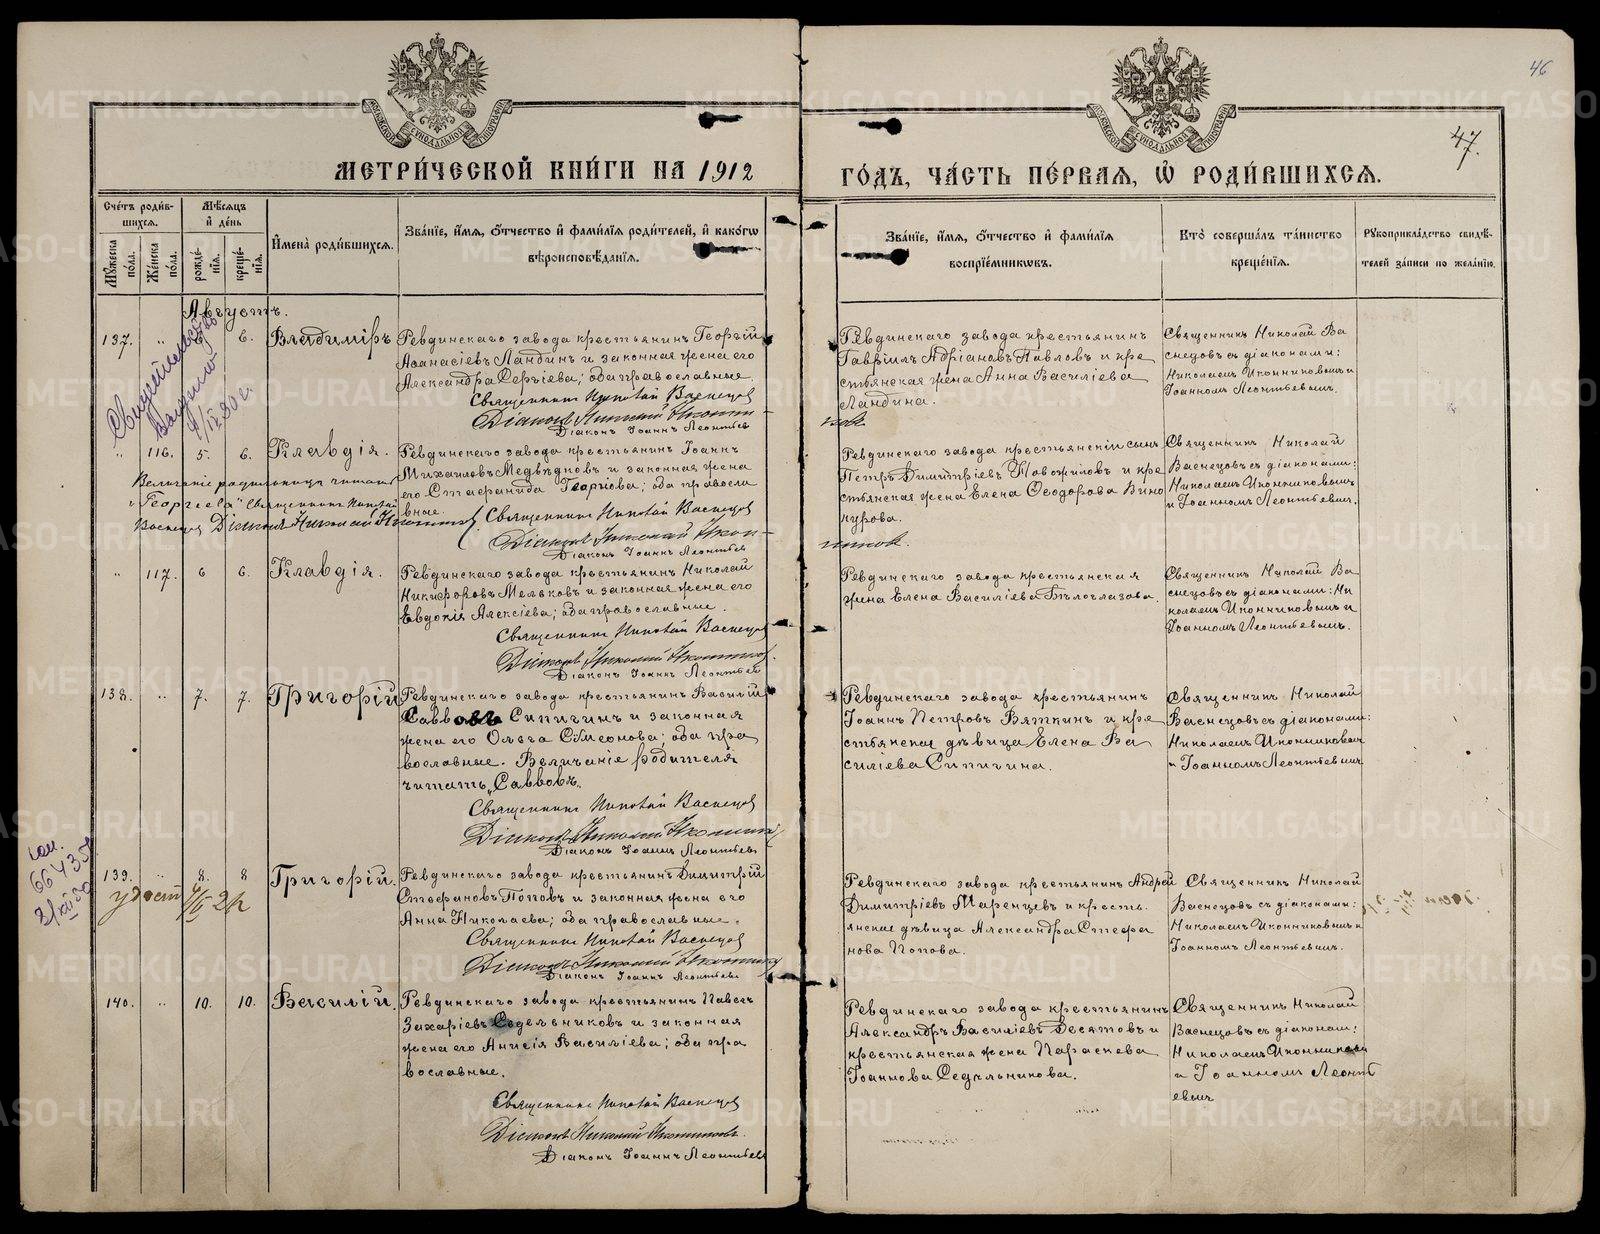 46
47.
МЕТРИ́ЧЕСКОЙ КНИ́ГИ НА 1912
ГО́ДЪ, ЧА́СТЬ ПЕ́РВАЯ, Ѡ РОДИ́ВШИХСЯ.
Сче́тъ роди́в-
шихся.
Мꙋжеска по́ла.
Же́нска по́ла.
Мѣ́сяцъ
и́ де́нь
рожде́-
нїя.
креще́-
нїя.
И҆мена̀ роди́вшихся.
Зва́нїе, и҆́мя, ѻ҆́тчество и҆ фами́лїя роди́телей, и҆ како́гѡ
вѣроисповѣ́данїя.
Зва́нїе, и҆́мя, ѻ҆́тчество и҆ фами́лїя
воспрїе́мникѡвъ.
Кто̀ соверша́лъ та́инство
креще́нїя.
Рꙋкоприкла́дство свидѣ́-
телей за́писи по жела́нїю.
Августъ.
137.
"
6.
Владиміръ
Ревдинскаго завода крестьянинъ Георгій
Аѳанасіевъ Ландинъ и законная жена его
Александра Сергіева; оба православные.
Священникъ Николай Васнецов
Діаконъ Николай Иконни-
Діаконъ Іоаннъ Леонтьев
Ревдинскаго завода крестьянинъ
Гавріилъ Адріановъ Павловъ и кре
стьянская жена Анна Василіева
Ландина.
ков.
Священникъ Николай Ва
снецовъ съ діаконами:
Николаемъ Иконниковымъ и
Іоанномъ Леонтьевымъ.
"
116.
5.
6.
Клавдія.
Ревдинскаго завода крестьянинъ Іоаннъ
Михаиловъ Медвѣдковъ и законная жена
его Стефанида Георгіова; оба правосла
вные.
Священникъ Николай Васнецов
Діаконъ Николай Икон-
Діаконъ Іоаннъ Леонтьев
Величаніе родильницы читать
"Георгіева" Священникъ Николай
Васнецов Діаконъ Николай
Ревдинскаго завода крестьянскій сынъ
Петръ Димитріевъ Новожиловъ и кре
стьянская жена Елена Ѳеодорова Вино
курова.
ников.
Священникъ Николай
Васнецовъ съ діаконами:
Николаемъ Иконниковымъ
и Іоанномъ Леонтьевым.
"
117.
6
6.
Клавдія.
Ревдинскаго завода крестьянинъ Николай
Никифоровъ Мельковъ и законная жена его
Евдокія Алексіева; оба православные.
Священникъ Николай Васнецов
Діаконъ Николай Иконников.
Діаконъ Іоаннъ Леонтьев
Ревдинскаго завода крестьянская
жена Елена Василіева Бѣлоглазова.
Священникъ Николай Ва
снецовъ съ діаконами: Ни
колаемъ Иконниковымъ и
Іоанномъ Леонтьевымъ.
138.
"
7.
7.
Григорій
Ревдинскаго завода крестьянинъ Василій
Саввовъ Сипигинъ и законная
жена его Ольга Сѵмеонова; оба пра
вославные. Величаніе родителя
читать „Саввовъ„
Священникъ Николай Васнецов
Діаконъ Николай Иконников
Діаконъ Іоаннъ Леонтьев
Ревдинскаго завода крестьянинъ
Іоаннъ Петровъ Вяткинъ и кре
стьянская дѣвица Елена Ва
силіева Сипигина.
Священникъ Николай
Васнецовъ съ діаконами:
Николаемъ Иконниковым
и Іоанномъ Леонтьевым
139.
"
8.
8
Григорій.
Ревдинскаго завода крестьянинъ Димитрій
Стефановъ Поповъ и законная жена его
Анна Николаева; оба православные.
Священникъ Николай Васнецов
Діаконъ Николай Иконников
Діаконъ Іоаннъ Леонтьев
Ревдинскаго завода крестьянинъ Андрей
Димитріевъ Маренцевъ и кресть
янская дѣвица Александра Стефа
нова Попова.
Священникъ Николай
Васнецовъ съ діаконами:
Николаемъ Иконниковымъ и
Іоанномъ Леонтьевым.
140.
"
10.
10.
Василій.
Ревдинскаго завода крестьянинъ Павелъ
Захаріевъ Седельниковъ и законная
жена его Анисія Василіева; оба пра
вославные.
Священникъ Николай Васнецов
Діаконъ Николай Иконников.
Діаконъ Іоаннъ Леонтьев
Ревдинскаго завода крестьянинъ
Александръ Василіевъ Десятовъ и
крестьянская жена Параскева
Іоаннова Седельникова.
Священникъ Николай
Васнецовъ съ діаконам:
Николаемъ Иконникова
и Іоанномъ Леонть
евым
METRIKI.GASO-URAL.RU